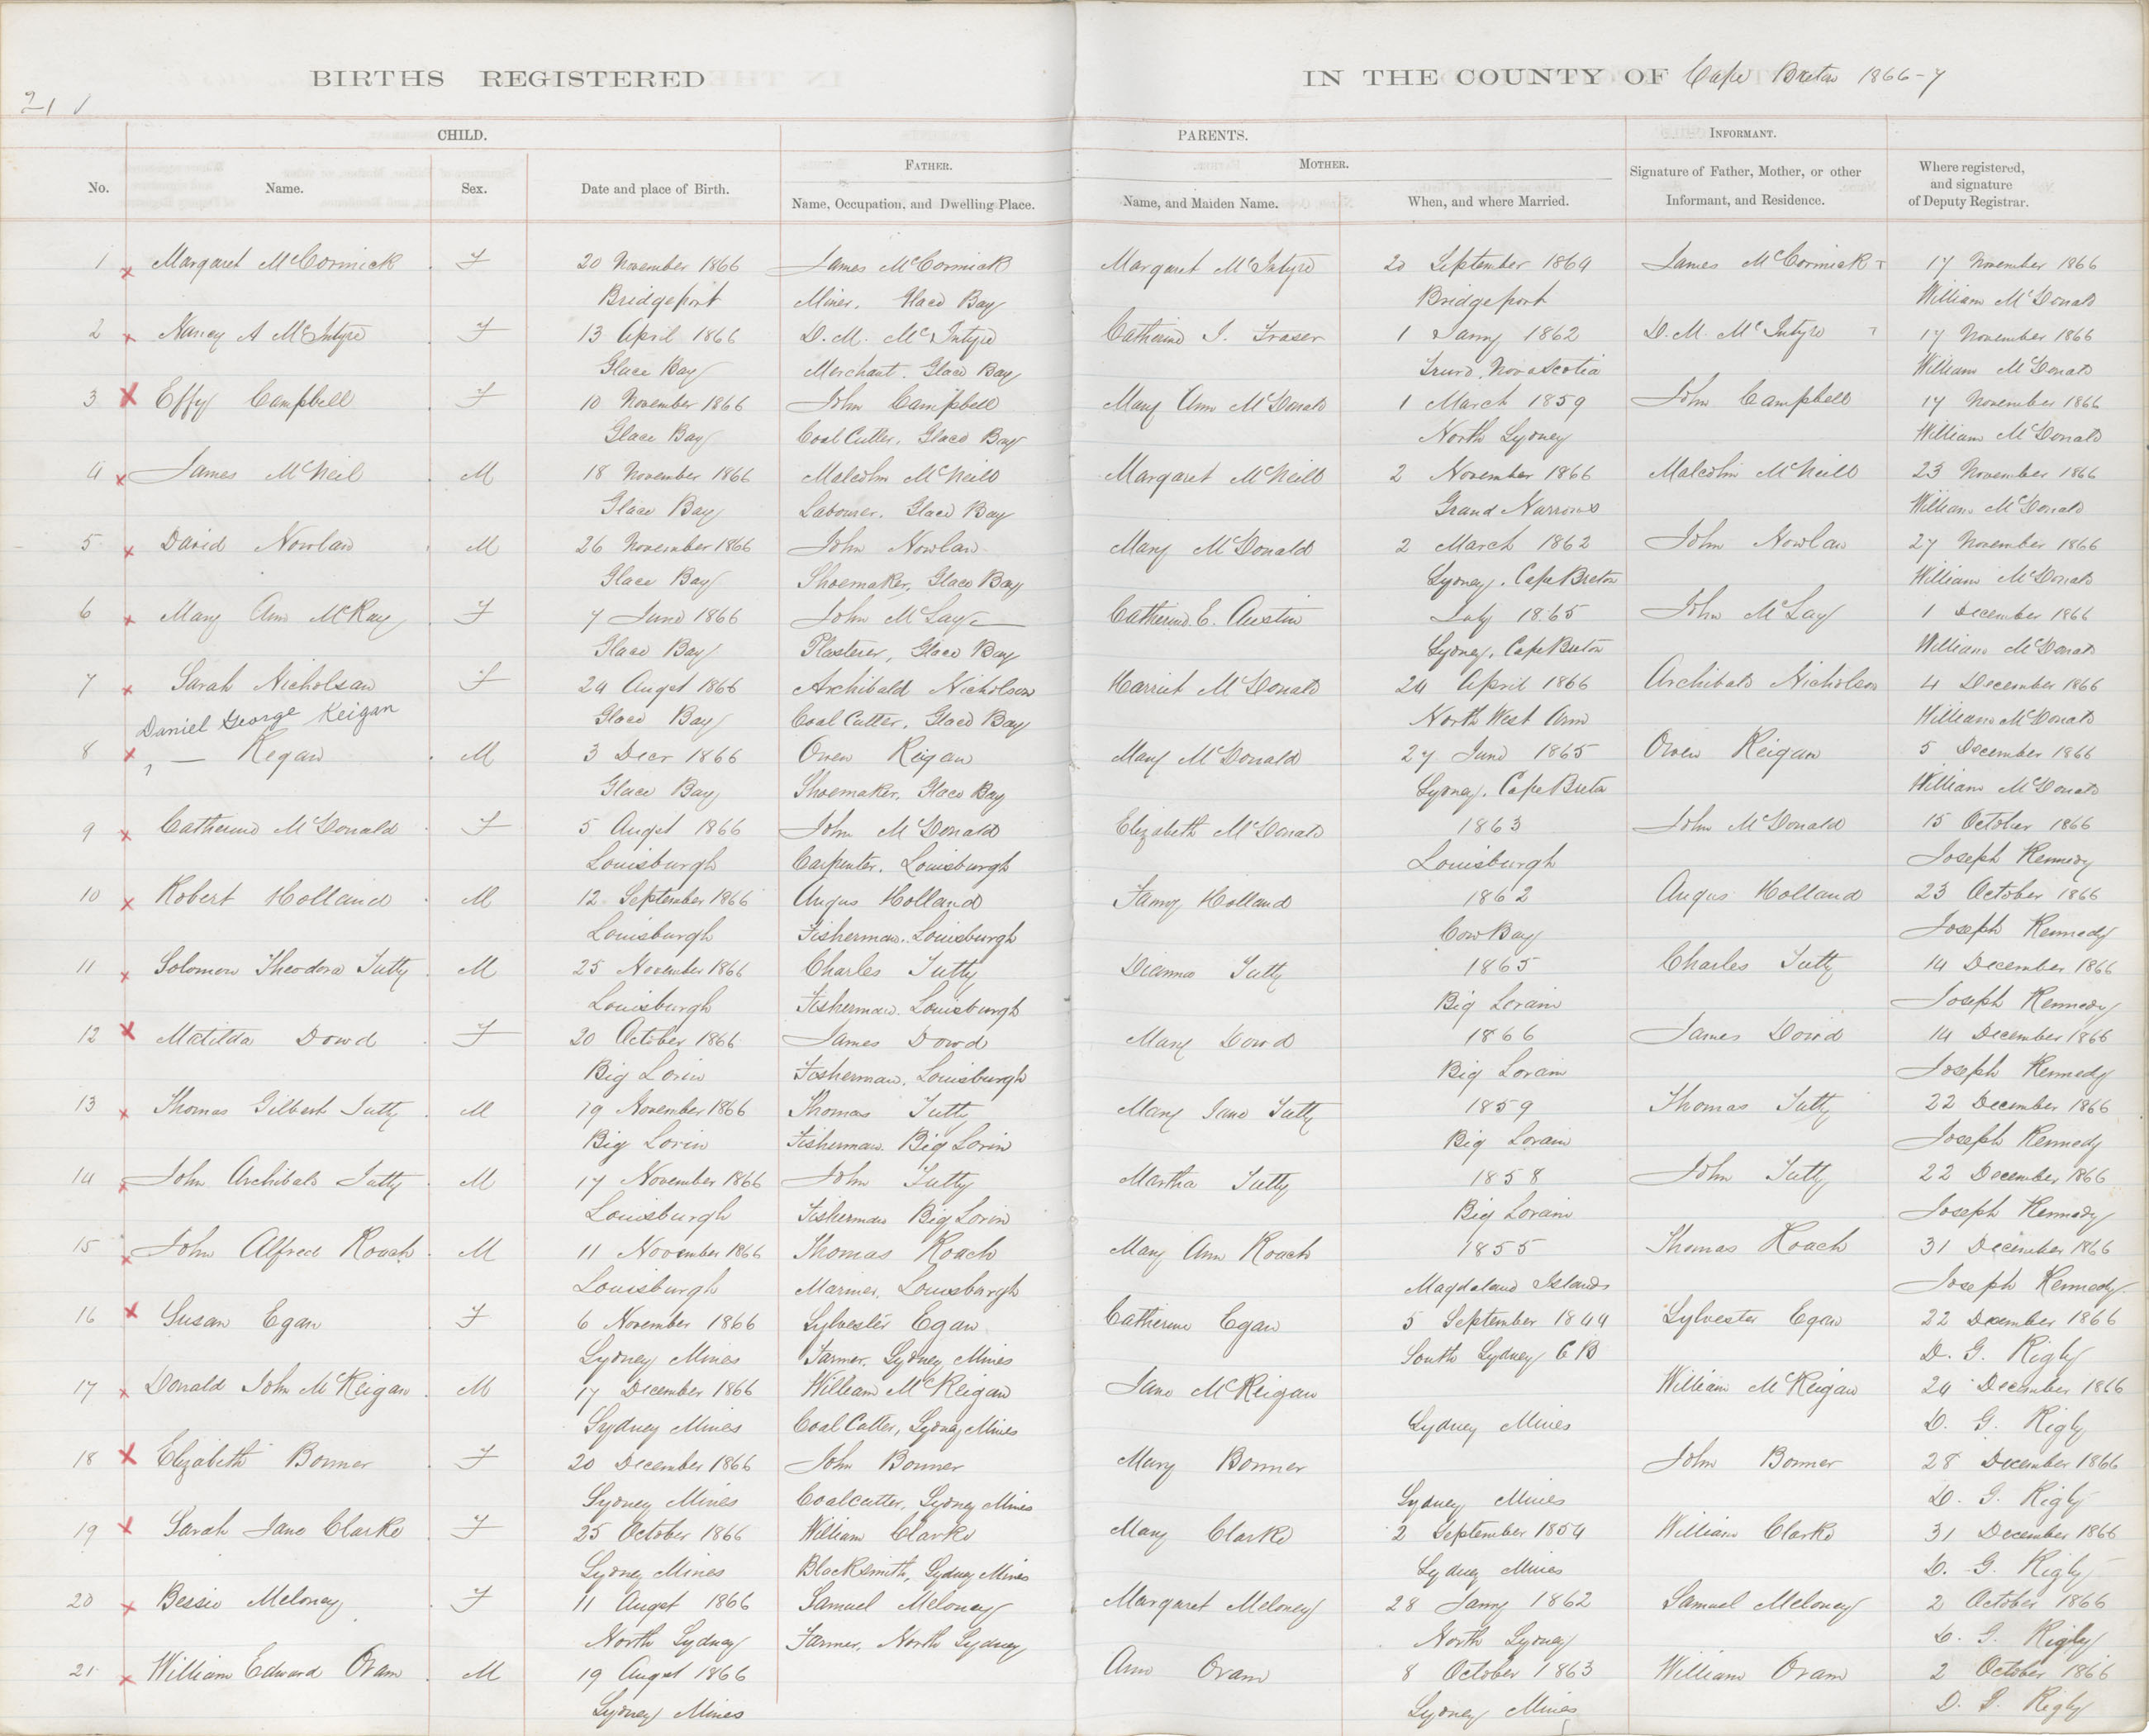 BIRTHS REGISTERED IN THE COUNTY OF Cape Breton 1866-7
21
CHILD. PARENTS. INFORMANT.
FATHER. MOTHER.
No. Name. Sex. Date and place of Birth. Name, Occupation, and Dwelling Place. Name, and Maiden Name. When, and where Married. Signature of Father, Mother, or other Informant, and Residence. Where registered, and signature of Deputy Registrar.
1 x Margaret McCormick F 20 November 1866 James McCormick Margaret McIntyre 20 September 1864 James McCormick 17 November 1866
Bridgeport Miner, Glace Bay Bridgeport William McDonald
2 x Nancy A McIntyre F 13 April 1866 D. M. McIntyre Catherine I. Fraser 1 Jany 1862 D. M. McIntyre 17 November 1866
Glace Bay Merchant. Glace Bay Truro, Nova Scotia William McDonald
3 x Effy Campbell F 10 November 1866 John Campbell Mary Ann McDonald 1 March 1859 John Campbell 17 November 1866
Glace Bay Coal Cutter, Glace Bay North Sydney William McDonald
4 x James McNeil M 18 November 1866 Malcolm McNeill Margaret McNeill 2 November 1866 Malcolm McNeill 23 November 1866
Glace Bay Labourer. Glace Bay Grand Narrows William McDonald
5 x David Nowlan M 26 November 1866 John Nowlan Mary McDonald 2 March 1862 John Nowlan 27 November 1866
Glace Bay Shoemaker, Glace Bay Sydney, Cape Breton William McDonald
6 x Mary Ann McKay F 7 June 1866 John McLay Catherine E. Austin July 1865 John McLay 1 December 1866
Glace Bay Plasterer, Glace Bay Sydney, Cape Breton William McDonald
7 x Sarah Nicholson F 24 Augst 1866 Archibald Nicholson Harriet McDonald 24 April 1866 Archibald Nicholson 4 December 1866
Daniel George Keigan Glace Bay Coal Cutter, Glace Bay North West Arm William McDonald
8 x ? — Kegan M 3 Decr 1866 Owen Keigan Mary McDonald 27 June 1865 Owen Keigan 5 December 1866
Glace Bay Shoemaker, Glace Bay Sydney, Cape Breton William McDonald
9 x Catherine McDonald F 5 Augst 1866 John McDonald Elizabeth McDonald 1863 John McDonald 15 October 1866
Louisburgh Carpenter. Louisburgh Louisburgh Joseph Kennedy
10 x Robert Holland M 12 September 1866 Angus Holland Fanny Holland 1862 Angus Holland 23 October 1866
Louisburgh Fisherman. Louisburgh Cow Bay Joseph Kennedy
11 x Solomon Theodore Tutty M 25 November 1866 Charles Tutty Dianna Tutty 1865 Charles Tutty 14 December 1866
Louisburgh Fisherman. Louisburgh Big Lorain Joseph Kennedy
12 x Matilda Dowd F 20 October 1866 James Dowd Mary Dowd 1866 James Dowd 14 December 1866
Big Lorin Fisherman, Louisburgh Big Lorain Joseph Kennedy
13 x Thomas Gilbert Tutty M 19 November 1866 Thomas Tutty Mary Jane Tutty 1859 Thomas Tutty 22 December 1866
Big Lorin Fisherman. Big Lorin Big Lorain Joseph Kennedy
14 x John Archibald Tutty M 17 November 1866 John Tutty Martha Tutty 1858 John Tutty 22 December 1866
Louisburgh Fisherman Big Lorin Big Lorain Joseph Kennedy
15 x John Alfred Roach M 11 November 1866 Thomas Roach Mary Ann Roach 1855 Thomas Roach 31 December 1866
Louisburgh Mariner, Louisburgh Magdaland Islands Joseph Kennedy
16 x Susan Egan F 6 November 1866 Sylvester Egan Catherine Egan 5 September 1844 Sylvester Egan 22 December 1866
Sydney Mines Farmer, Sydney Mines South Sydney C B D. G. Rigby
17 x Donald John McKeigan M 17 December 1866 William McKeigan Jane McKeigan William McKeigan 24 December 1866
Sydney Mines Coal Cutter, Sydney Mines Sydney Mines D. G. Rigby
18 x Elizabeth Bonner F 20 December 1866 John Bonner Mary Bonner John Bonner 28 December 1866
Sydney Mines Coalcutter, Sydney Mines Sydney Mines D. G. Rigby
19 x Sarah Jane Clarke F 25 October 1866 William Clarke Mary Clarke 2 September 1854 William Clarke 31 December 1866
Sydney Mines Blacksmith, Sydney Mines Sydney Mines D. G. Rigby
20 x Bessie Meloney F 11 Augst 1866 Samuel Meloney Margaret Meloney 28 Jany 1862 Samuel Meloney 2 October 1866
North Sydney Farmer, North Sydney North Sydney D. G. Rigby
21 x William Edward Oram M 19 Augst 1866 Ann Oram 8 October 1863 William Oram 2 October 1866
Sydney Mines Sydney Mines D. G. Rigby